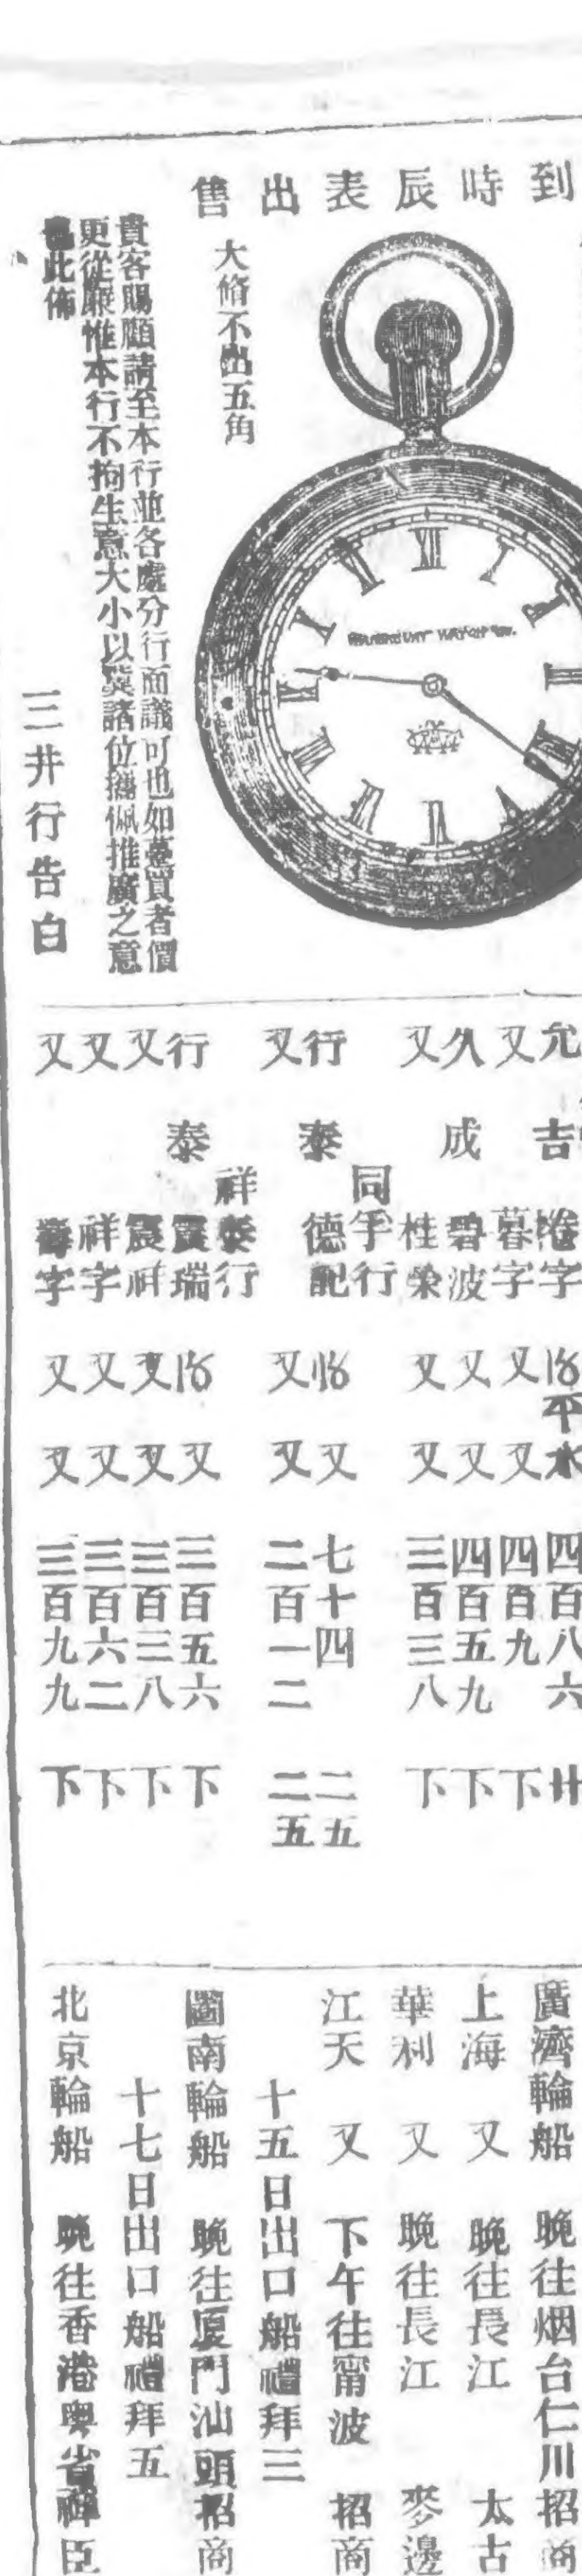 到時辰表出售
大脩不出五角
貴客賜顧請至本行並各處分行面議可也如躉買者價
更從廉惟本行不拘生意大小以冀諸位攜佩推廣之意
此佈
三井行告白
允吉 字 平水 四百八六 廿
又 暮字 又 又 四百九 下
久成 碧波 又 又 四百五九 下
又 桂榮 又 又 三百三八 下
同孚行
行泰 德記 又 七十四 二五
又 又 又 二百一二 二五
祥泰行
行泰 震瑞 又 三百五六 下
又 震祥 又 又 三百三八 下
又 祥字 又 又 三百六二 下
又 字 又 又 三百九九 下
廣濟輪船 晚往烟台仁川 招商
上海 又 晚往長江 太古
華利 又 晚往長江 麥邊
江天 又 下午往甯波 招商
十五日出口船禮拜三
圖南輪船 晚往厦門汕頭 招商
十七日出口船禮拜五
北京輪船 晚往香港粤省 禪臣